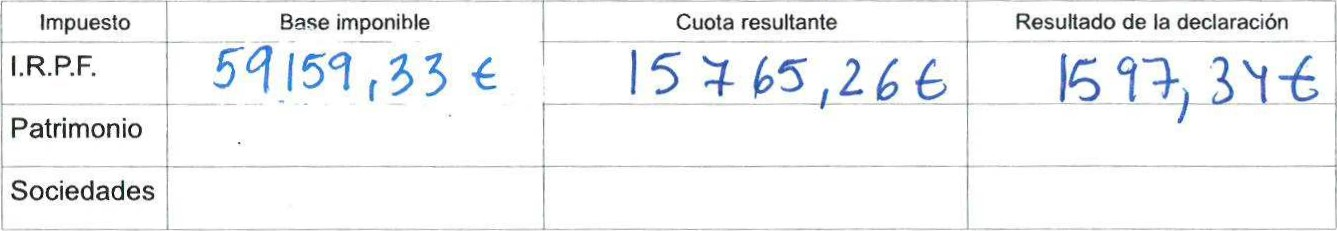 Impuesto Base imponible Cuota resultante Resultado de la declaración
I.R.P.F. 59159,33 € 15765,26€ 1597,34€
Patrimonio
Sociedades